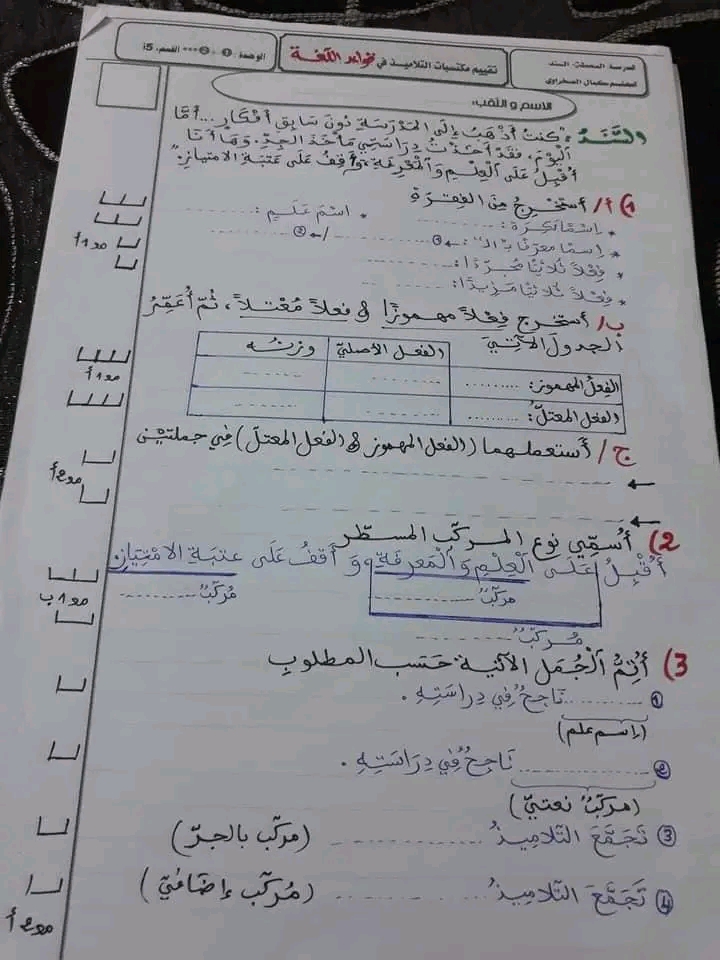 المدرسة المحطة، السند
المعلم كمال الصخراوي
تقييم مكتسبات التلاميذ في قواعد اللغة
الوحدة، ① - ② *** القسم، 5i
الاسم و اللقب،
السَّنَدُ: كُنْتُ أَذْهَبُ إِلَى المَدْرَسَةِ دُونَ سَابِقِ أَفْكَارٍ... أَمَّا
اليَوْمَ، فَقَدْ أَخَذْتُ دِرَاسَتِي مَأْخَذَ الجِدِّ. وَهَا أَنَا
أُقْبِلُ عَلَى الْعِلْمِ وَالْمَعْرِفَةِ وَأَقِفُ عَلَى عَتَبَةِ الامْتِيَازِ."
1) أ/ أَسْتَخْرِجُ مِنَ الفِقْرَةِ
* اِسْمًا نَكِرَةً: ........ * اسْمَ عَلَمٍ: ........
* اِسمًا معرفًا بـ "الـ": ←① ........ /←② ........
* فِعْلاً ثُلاَثِيًّا مُجَرَّدًا: ........
* فِعْلاً ثُلاَثِيًّا مَزِيدًا: ........
مع1أ
ب/ أستخرج فِعْلاً مهموزًا و فعلاً مُعْتلاً، ثُمَّ أُعَمِّرُ
الجدولَ الآتِيَ
الفعل الأصليّ وزنُه
الفِعلُ المهموز: ........
الفعل المعتلُّ: ........
مع1أ
ج/ أَستعملهما (الفعل المهموز و الفعل المعتلّ) فِي جملتَيْن
مع2أ
2) أُسَمِّي نوع المركّب المسطّر
أُقْبِلُ عَلَى الْعِلْمِ وَالْمَعْرِفَةِ وَ أَقِفُ عَلَى عتبَةِ الامْتِيَازِ.
مركّبٌ ........ مُركّبٌ ........
مع1ب
مُركّبٌ ........
3) أُتِمُّ الْجُمَلَ الآتيةَ حَسَبَ المطلوبِ
① ........ نَاجِحٌ فِي دِرَاسَتِهِ.
(اِسم علم)
② ........ نَاجِحٌ فِي دِرَاسَتِهِ.
(مركّبٌ نعتيّ)
③ تَجَمَّعَ التّلامِيذُ ........ (مركّب بالجرّ)
④ تَجَمَّعَ التّلامِيذُ ........ (مُركّب إضَافيّ)
مع2أ